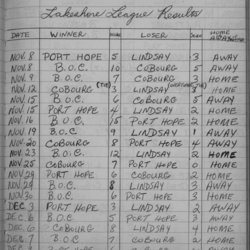 Lakeshore League Results
DATE WINNER LOSER HOME AWAY
NOV. 8 PORT HOPE 5 LINDSAY 3 AWAY
NOV. 8 B.O.C. 10 COBOURG 5 AWAY
NOV. 9 B.O.C. 7 COBOURG 3 HOME
NOV. 12 COBOURG (TIE) 3 LINDSAY 3 HOME
NOV. 15 B.O.C. 6 COBOURG 5 AWAY
NOV. 15 PORT HOPE 4 LINDSAY 4 HOME
NOV. 16 B.O.C. 15 PORT HOPE 2 HOME
NOV. 19 B.O.C. 9 LINDSAY 1 AWAY
NOV. 20 COBOURG 8 PORT HOPE 4 AWAY
NOV. 23 B.O.C. 12 LINDSAY 2 HOME
NOV. 25 COBOURG 7 LINDSAY HOME
NOV. 29 PORT HOPE 6 COBOURG 2 HOME
NOV. 29 B.O.C. 8 LINDSAY 3 AWAY
NOV. 30 B.O.C. 6 PORT HOPE 3 HOME
DEC. 3 PORT HOPE 3 LINDSAY 2 AWAY
DEC. B.O.C. PORT HOPE 3 AWAY
DEC. 6 COBOURG 8 LINDSAY 4 HOME
DEC. 7 B.O.C. COBOURG 2 HOME